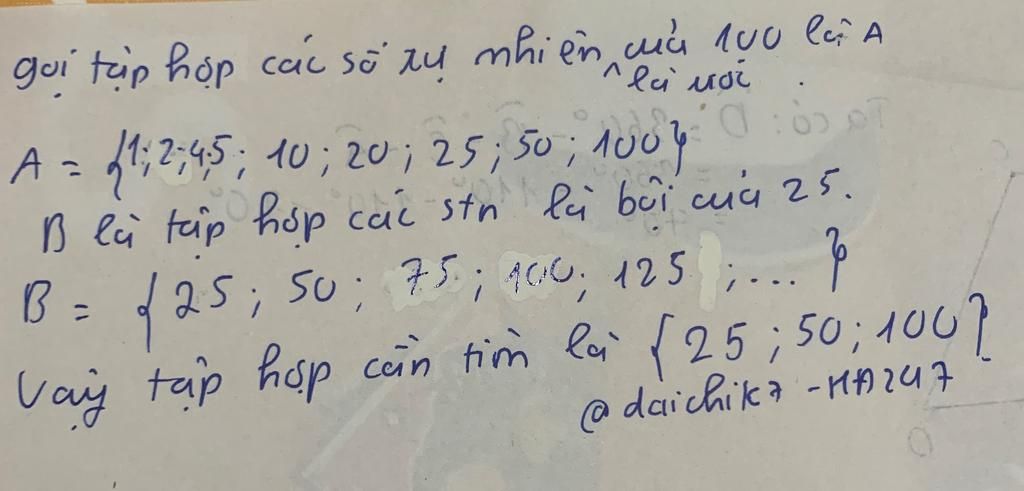 gọi tập hợp các số tự nhiên là ước của 100 là A
A = {1; 2; 4; 5; 10; 20; 25; 50; 100}
B là tập hợp các stn là bội của 25.
B = {25; 50; 75; 100; 125; ...}
Vậy tập hợp cần tìm là {25; 50; 100}
@daichik7-HA247